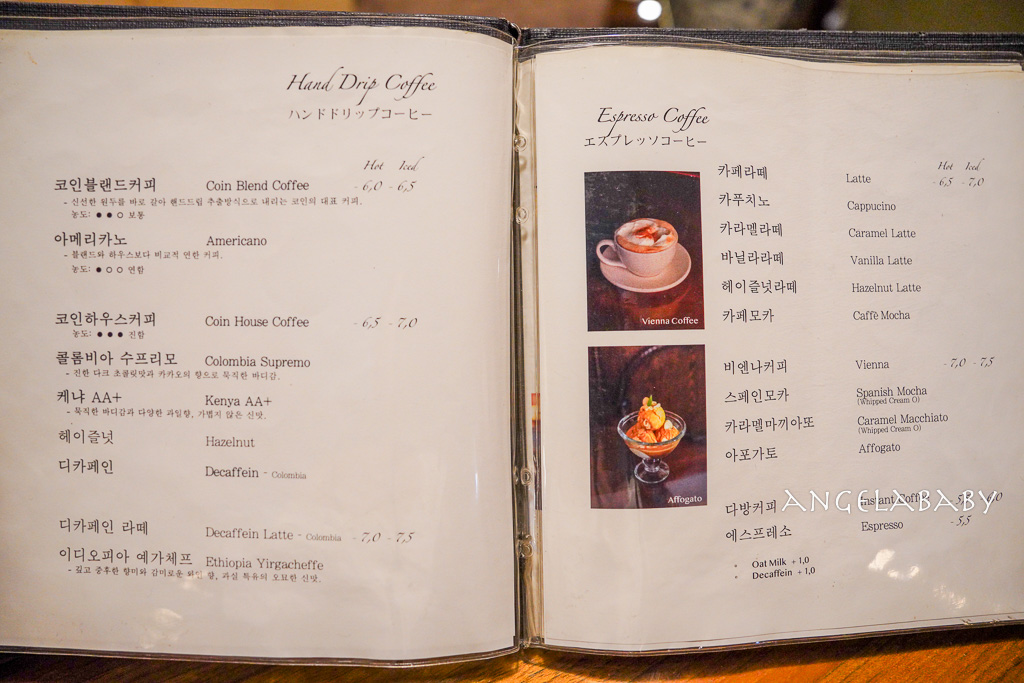 Hand Drip Coffee
ハンドドリップコーヒー
Hot Iced
코인블랜드커피 Coin Blend Coffee - 6,0 - 6,5
- 신선한 원두를 바로 갈아 핸드드립 추출방식으로 내리는 코인의 대표 커피.
농도: ● ● ○ 보통
아메리카노 Americano
- 블랜드와 하우스보다 비교적 연한 커피.
농도: ● ○ ○ 연함
코인하우스커피 Coin House Coffee - 6,5 - 7,0
농도: ● ● ● 진함
콜롬비아 수프리모 Colombia Supremo
- 진한 다크 초콜릿맛과 카카오의 향으로 묵직한 바디감.
케냐 AA+ Kenya AA+
- 묵직한 바디감과 다양한 과일향, 가볍지 않은 신맛.
헤이즐넛 Hazelnut
디카페인 Decaffein - Colombia
디카페인 라떼 Decaffein Latte - Colombia - 7,0 - 7,5
이디오피아 예가체프 Ethiopia Yirgacheffe
- 깊고 중후한 향미와 감미로운 와인 향, 과실 특유의 오묘한 신맛.
Espresso Coffee
エスプレッソコーヒー
Hot Iced
카페라떼 Latte - 6,5 - 7,0
카푸치노 Cappucino
카라멜라떼 Caramel Latte
바닐라라떼 Vanilla Latte
헤이즐넛라떼 Hazelnut Latte
카페모카 Caffè Mocha
Vienna Coffee
비엔나커피 Vienna - 7,0 - 7,5
스페인모카 Spanish Mocha
(Whipped Cream O)
카라멜마끼아또 Caramel Macchiato
(Whipped Cream O)
아포가토 Affogato
Affogato
다방커피 Instant 6,0
에스프레소 Espresso - 5,5
• Oat Milk + 1,0
• Decaffein + 1,0
ANGELABABY